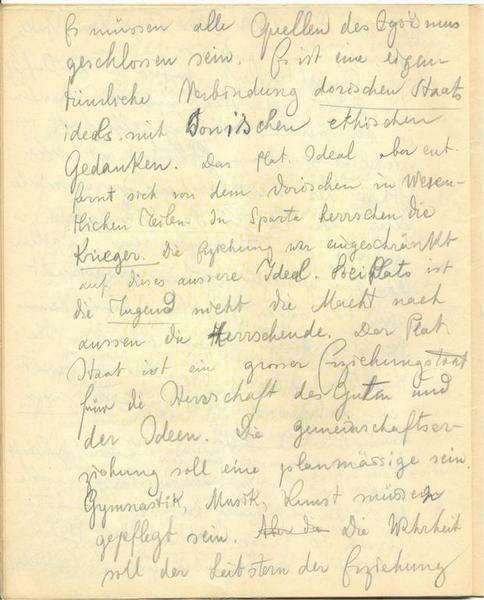 Es müssen alle Quellen des Egoismus
geschlossen sein. Es ist eine eigen
tümliche Verbindung dorischen Staats
ideals mit Ionischen ethischen
Gedanken. Das Plat. Ideal aber ent-
fernt sich von dem dorischen in Wesen-
tlichen Teilen. In Sparta herrschen die
Krieger. Die Erziehung war eingeschränkt
auf dieses aussere Ideal. Bei Plato ist
die Tugend nicht die Macht nach
aussen die Herrschende. Der Plat.
Staat ist ein grosser Erziehungstaat
für die Herrschaft des Guten und
der Ideen. Die gemeinschaftser-
ziehung soll eine planmässige sein.
Gymnastik, Musik, Kunst müssen
gepflegt sein. Aber die Die Wahrheit
soll der Leitstern der Erziehung